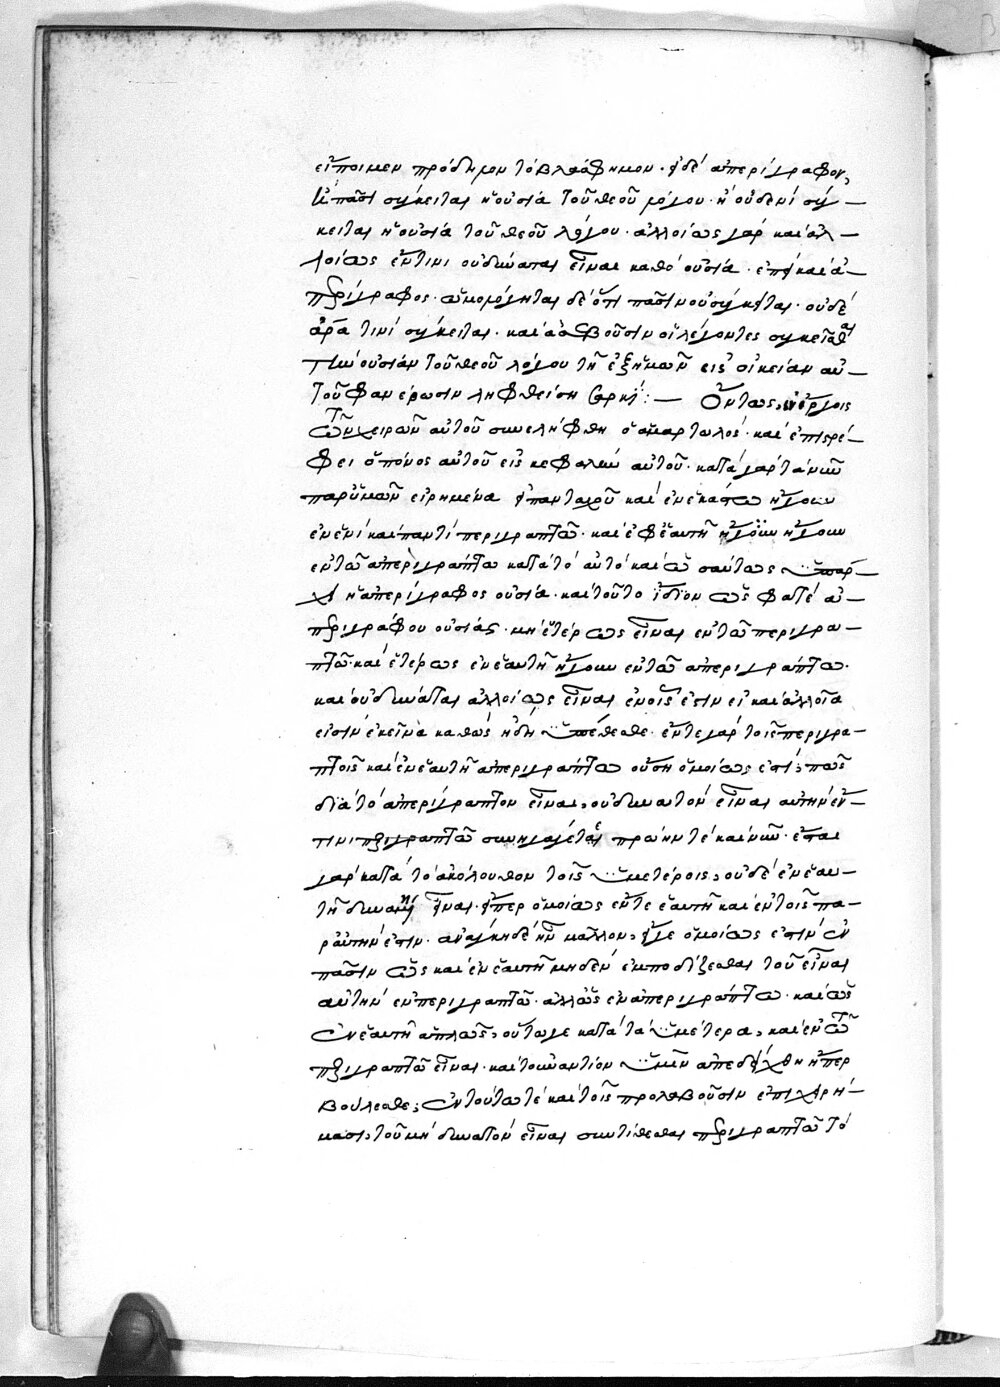 εἴποιμεν πρόδηλον τὸ βλάσφημον· εἰ δὲ ἀπερίγραφον,
ἢ πᾶσι σύγκειται ἡ οὐσία τοῦ θεοῦ λόγου· ἢ οὐδενὶ σύγ-
κειται ἡ οὐσία τοῦ θεοῦ λόγου· ἀλλοίως γὰρ καὶ ἀλ-
λοίως ἔν τινι οὐ δύναται εἶναι καθὸ οὐσία· ἐπεὶ καὶ ἀ-
περίγραφος· ὡμολόγηται δὲ ὅτι πᾶσιν οὐ σύγκειται· οὐδέ
ἄρα τινὶ σύγκειται· καὶ ἀσεβοῦσιν οἱ λέγοντες συγκεῖσθαι
τὴν οὐσίαν τοῦ θεοῦ λόγου τῇ ἐξ ἡμῶν εἰς οἰκείαν αὐ-
τοῦ φανέρωσιν ληφθείσῃ σαρκί:— Ὄντως, ἐν ἔργοις
τῶν χειρῶν αὐτοῦ συνελήφθη ὁ ἁμαρτωλός· καὶ ἐπιστρέ-
φει ὁ πόνος αὐτοῦ εἰς κεφαλὴν αὐτοῦ· κατὰ γὰρ τὰ νῦν
παρ' ὑμῶν εἰρημένα εἰ πανταχοῦ καὶ ἐν ἑκάστῳ ἤγουν
ἐν ἑνὶ καὶ παντὶ περιγραπτῷ· καὶ ἐφ' ἑαυτῇ ἤγουν ἤγουν
ἐν τῷ ἀπεριγράπτῳ κατὰ τὸ αὐτὸ καὶ ὡσαύτως ὑπάρ-
χει ἡ ἀπερίγραφος οὐσία· καὶ τοῦτο ἴδιον ὥς φατε ἀ-
περιγράφου οὐσίας· μὴ ἑτέρως εἶναι ἐν τῷ περιγρα-
πτῷ· καὶ ἑτέρως ἐν ἑαυτῇ ἤγουν ἐν τῷ ἀπεριγράπτῳ·
καὶ οὐ δύναται ἀλλοίως εἶναι ἐν οἷς ἐστιν εἰ καὶ ἀλλοῖα
εἰσὶν ἐκεῖνα καθὼς ἤδη ὑπέθεσθε· ἔν τε γὰρ τοῖς περιγρα-
πτοῖς καὶ ἐν ἑαυτῇ ἀπεριγράπτῳ οὔσῃ ὁμοίως ἐστί; πῶς
διὰ τὸ ἀπερίγραπτον εἶναι, οὐ δυνατὸν εἶναι αὐτὴν ἔν
τινι περιγραπτῷ συνηγάγετε πρώην τὲ καὶ νῦν· ἔσται
γὰρ κατὰ τὸ ἀκόλουθον τοῖς ὑμετέροις, οὐδὲ ἐν ἑαυ-
τῇ δυνατὴ εἶναι· εἴπερ ὁμοίως ἔν τε ἑαυτῇ καὶ ἐν τοῖς πα-
ρ' αὐτήν ἐστιν· ἀνάγκη δὲ ἦν μᾶλλον, εἴγε ὁμοίως ἐστὶν ἐν
πᾶσιν ὡς καὶ ἐν ἑαυτῇ μηδὲν ἐμποδίζεσθαι τοῦ εἶναι
αὐτὴν ἐν περιγραπτῷ· ἀλλ' ὡς ἐν ἀπεριγράπτῳ· καὶ ὡς
ἐν ἑαυτῇ ἁπλῶς, οὕτω γε κατὰ τὰ ὑμέτερα, καὶ ἐν τῷ
περιγραπτῷ εἶναι· καὶ τοὐναντίον ὑμῖν ἀπεδείχθη ἤπερ
βούλεσθε; ἐν τούτῳ τὲ καὶ τοῖς προλαβοῦσιν ἐπιχειρή-
μασι, τοῦ μὴ δυνατὸν εἶναι συντίθεσθαι περιγραπτῷ τὸ